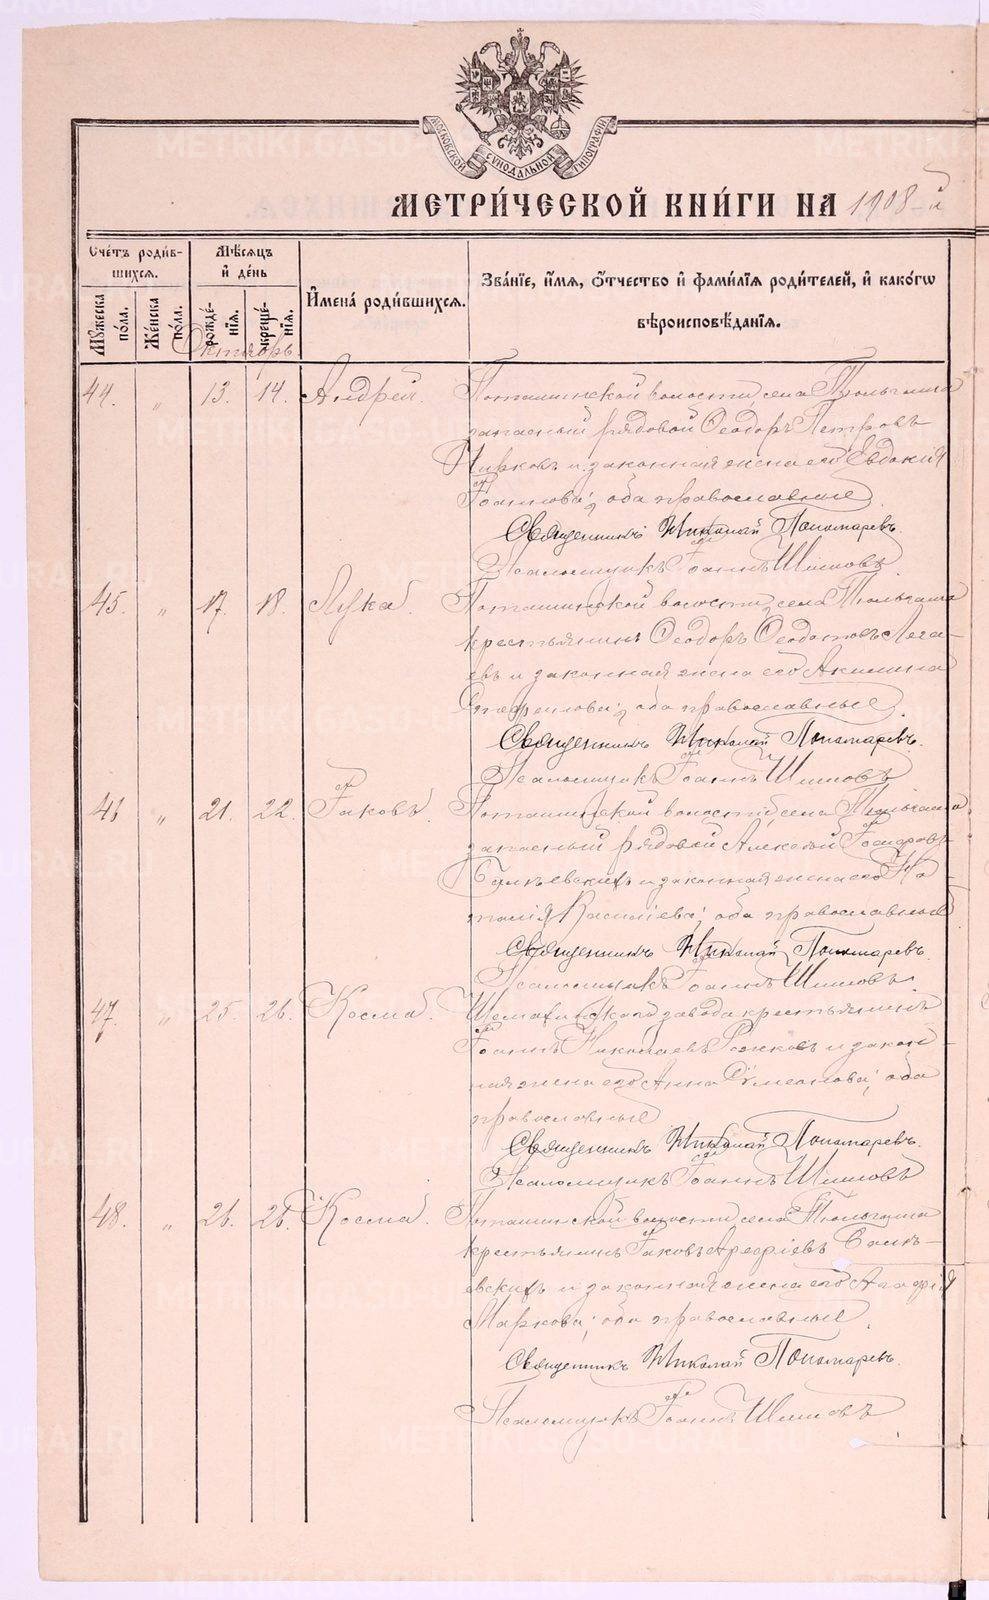 МОСКОВСКОЙ СѴНОДАЛЬНОЙ ТИПОГРАФІИ
МЕТРИ́ЧЕСКОЙ КНИ́ГИ НА 1908-й
Сче́тъ роди́в-
шихся.
Мꙋ́жеска по́ла.
Же́нска по́ла.
Мѣ́сяцъ и҆ де́нь
рожде́нїя.
креще́нїя.
И҆мена̀ роди́вшихся.
Зва́нїе, и҆́мя, ѻ҆́тчество и҆ фами́лїя роди́телей, и҆ како́гѡ
вѣроисповѣ́данїя.
Октябрь.
44. „ 13. 14. Андрей. Поташинской волости, села Тюльгаша
запасный рядовой Ѳеодоръ Петровъ
и законная жена его Евдокія
Іоаннова; оба православные.
Священникъ Николай Пономаревъ.
Псаломщикъ Іоаннъ Шишовъ
45. „ 17. 18. Лука. Поташинской волости, села Тюльгаша
крестьянинъ Ѳеодоръ Ѳеодотовъ
и законная жена его Акилина
оба православные.
Священникъ Николай Пономаревъ.
Псаломщикъ Іоаннъ Шишовъ
46 „ 21. 22. Іаковъ. Поташинской волости, села Тюльгаша
запасный рядовой Алексѣй
и законная жена его На-
талія Василіева; оба православные
Священникъ Николай Пономаревъ.
Псаломщикъ Іоаннъ Шишовъ.
47. „ 25. 26. Косма. Шемахинскаго завода крестьянинъ
Іоаннъ Николаевъ Рожковъ и закон-
ная жена его Анна Сѵмеонова; оба
православные
Священникъ Николай Пономаревъ.
Псаломщикъ Іоаннъ Шишовъ
48. „ 26. 26. Косма. Поташинской волости, села Тюльгаша
крестьянинъ Іаковъ
и законная жена его Агафія
Маркова; оба православные.
Священникъ Николай Пономаревъ.
Псаломщикъ Іоаннъ Шишовъ
METRIKI.GASO-URAL.RU